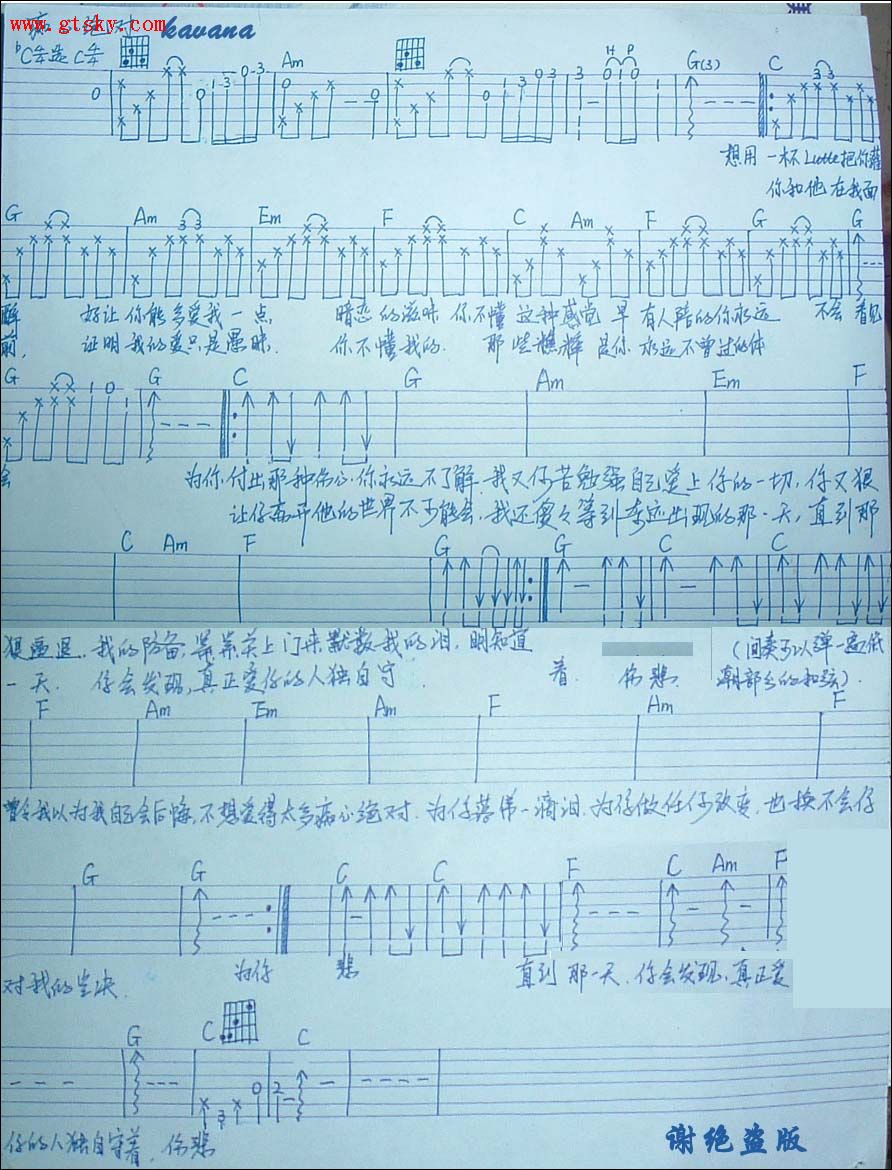 痴 绝对
www.gtsky.com kavana
Am G(3) C
H P
想用一杯Latte把你灌
你和他在我面
G Am Em F C Am F G G
醉 好让你能多爱我一点 暗恋的滋味 你不懂 这种感觉 早有人陪的你永远 不会 看见
前, 证明我的爱只是愚昧. 你不懂我的 那些憔悴 是你 永远不曾过的体
G G C G Am Em F
会 为你付出那种伤心你永远不了解 我又何苦勉强自己爱上你的一切, 你又狠
让你离开他的世界不可能会 我还傻々等到奇迹出现的那一天, 直到那
C Am F G G C C
狠逼退 我的防备 静静关上门来默数我的泪 明知道 (间奏可以弹一遍低
一天. 你会发现, 真正爱你的人独自守 着 伤悲 潮部分的和弦).
F Am Em Am F Am F
曾经我以为我自己会后悔, 不想爱得太多痴心绝对. 为你落第一滴泪. 为你做任何改变, 也换不会你
G G C C F C Am F
对我的坚决. 为你 悲 直到那一天. 你会发现, 真正爱
G C C
你的人独自守着, 伤悲
谢绝盗版